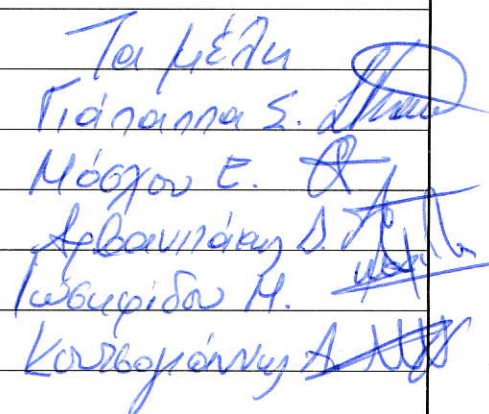 Τα μέλη
Γιάπαππα Σ.
Μόσχου Ε.
Αρβανιτάκης Δ.
Ιωσηφίδου Μ.
Κουτσογιάννης Α.